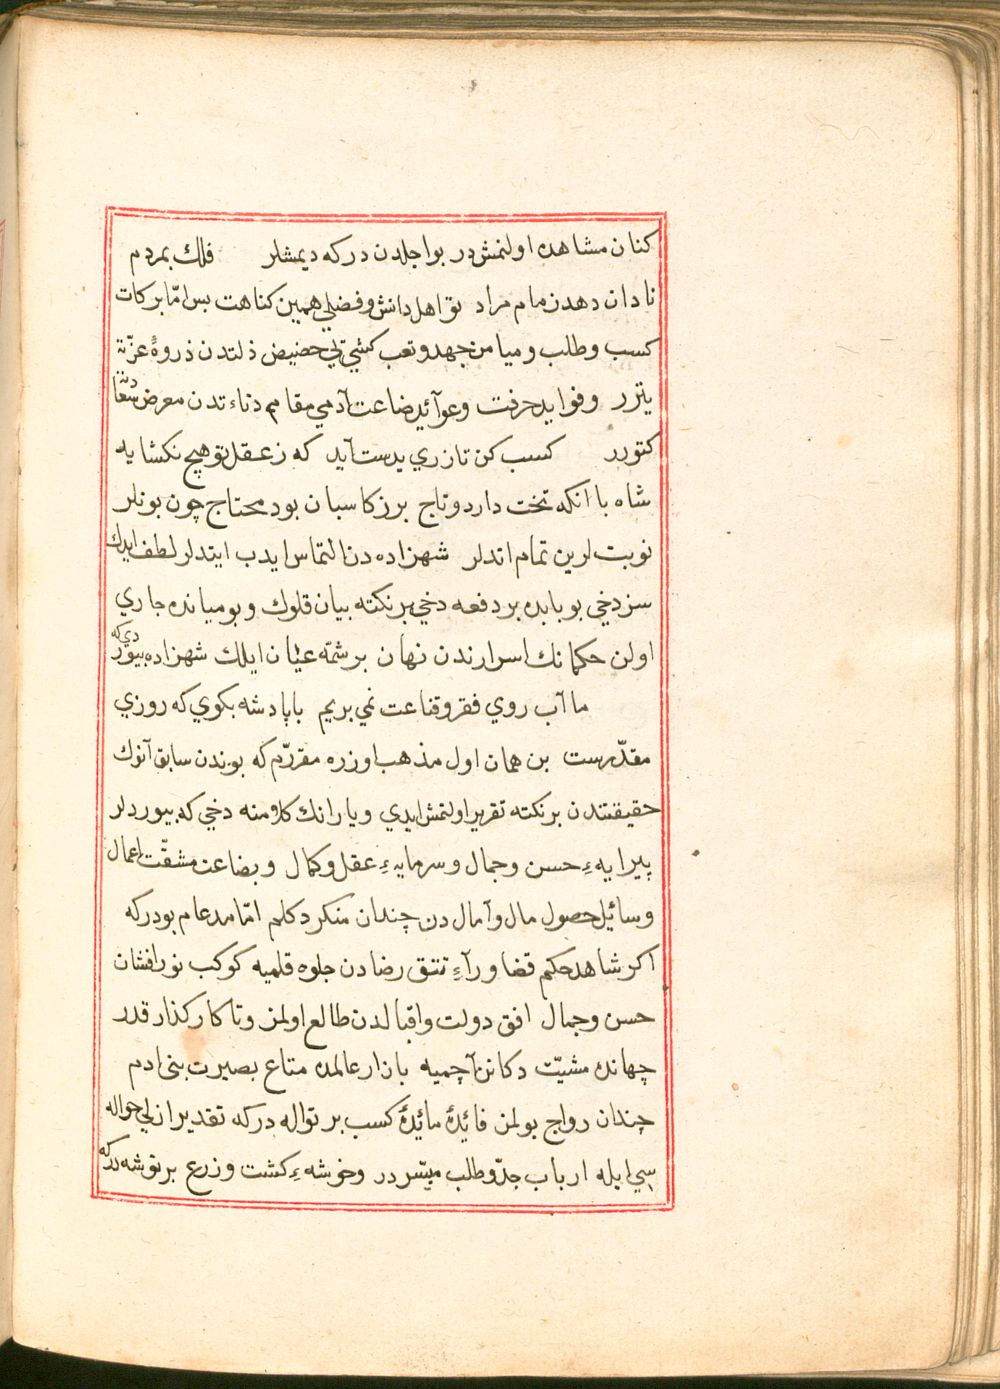 كنان مشاهده اولنمش در بو اجلدن در كه ديمشلر فلك بمردم
نادان دهدن مام مراد تو اهل دانش و فضلي همين كناهت بس امّا بركات
كسب و طلب و ميامن جهد و تعب كشي يي حضيض ذلتدن ذروۀ عزّته
يتزر و فوايد حرفت و عوآئد ضاعت آدمي مقام دناءتدن معرض
كتورر كسب كن تا زري بدست آيد كه ز عقل تو هيچ نكشايد
شاه با انكه تخت دارد و تاج بر زكاسبان بود محتاج چون بونلر
نوبت لرين تمام اتدلر شهزاده دن التماس ايدب ايتدلر لطف ايدك
سز دخي بو بابده بر دفعه دخي بر نكته بيان قلوك و بو ميانده جاري
اولن حكمانك اسرارندن نهان بر شمّه عيان ايلك شهزاده بيوردي كه
ما آب روي فقر و قناعت نمي بريم با پادشه بكوي كه روزي
مقدّرست بن همان اول مذهب اوزره مقررّم كه بوندن سابق آنوك
حقيقتندن بر نكته تقرير اولنمش ايدي و يارانك كلامنه دخي كه بيوردلر
پيرايهء حسن و جمال و سرمايهء عقل و كمال و بضاعت مشقّت اعمال
وسائل حصول مال و آمال در چندان منكر دكلم امّا مدعام بودر كه
اكر شاهد حكم قضا ورآء تتق رضادن جلوه قلميه كوكب نورافشان
حسن و جمال افق دولت و اقبالدن طالع اولمز و تا كاركذار قدر
چهانده مشيّت دكانن آچميه بازار عالمده متاع بصيرت بنى ادم
چندان رواج بولمز فائدۀ مائدۀ كسب بر نواله در كه تقدير ازلي حواله
سي ايله ارباب جدّ و طلب ميسّر در و خوشهء كشت و زرع بر توشه در كه